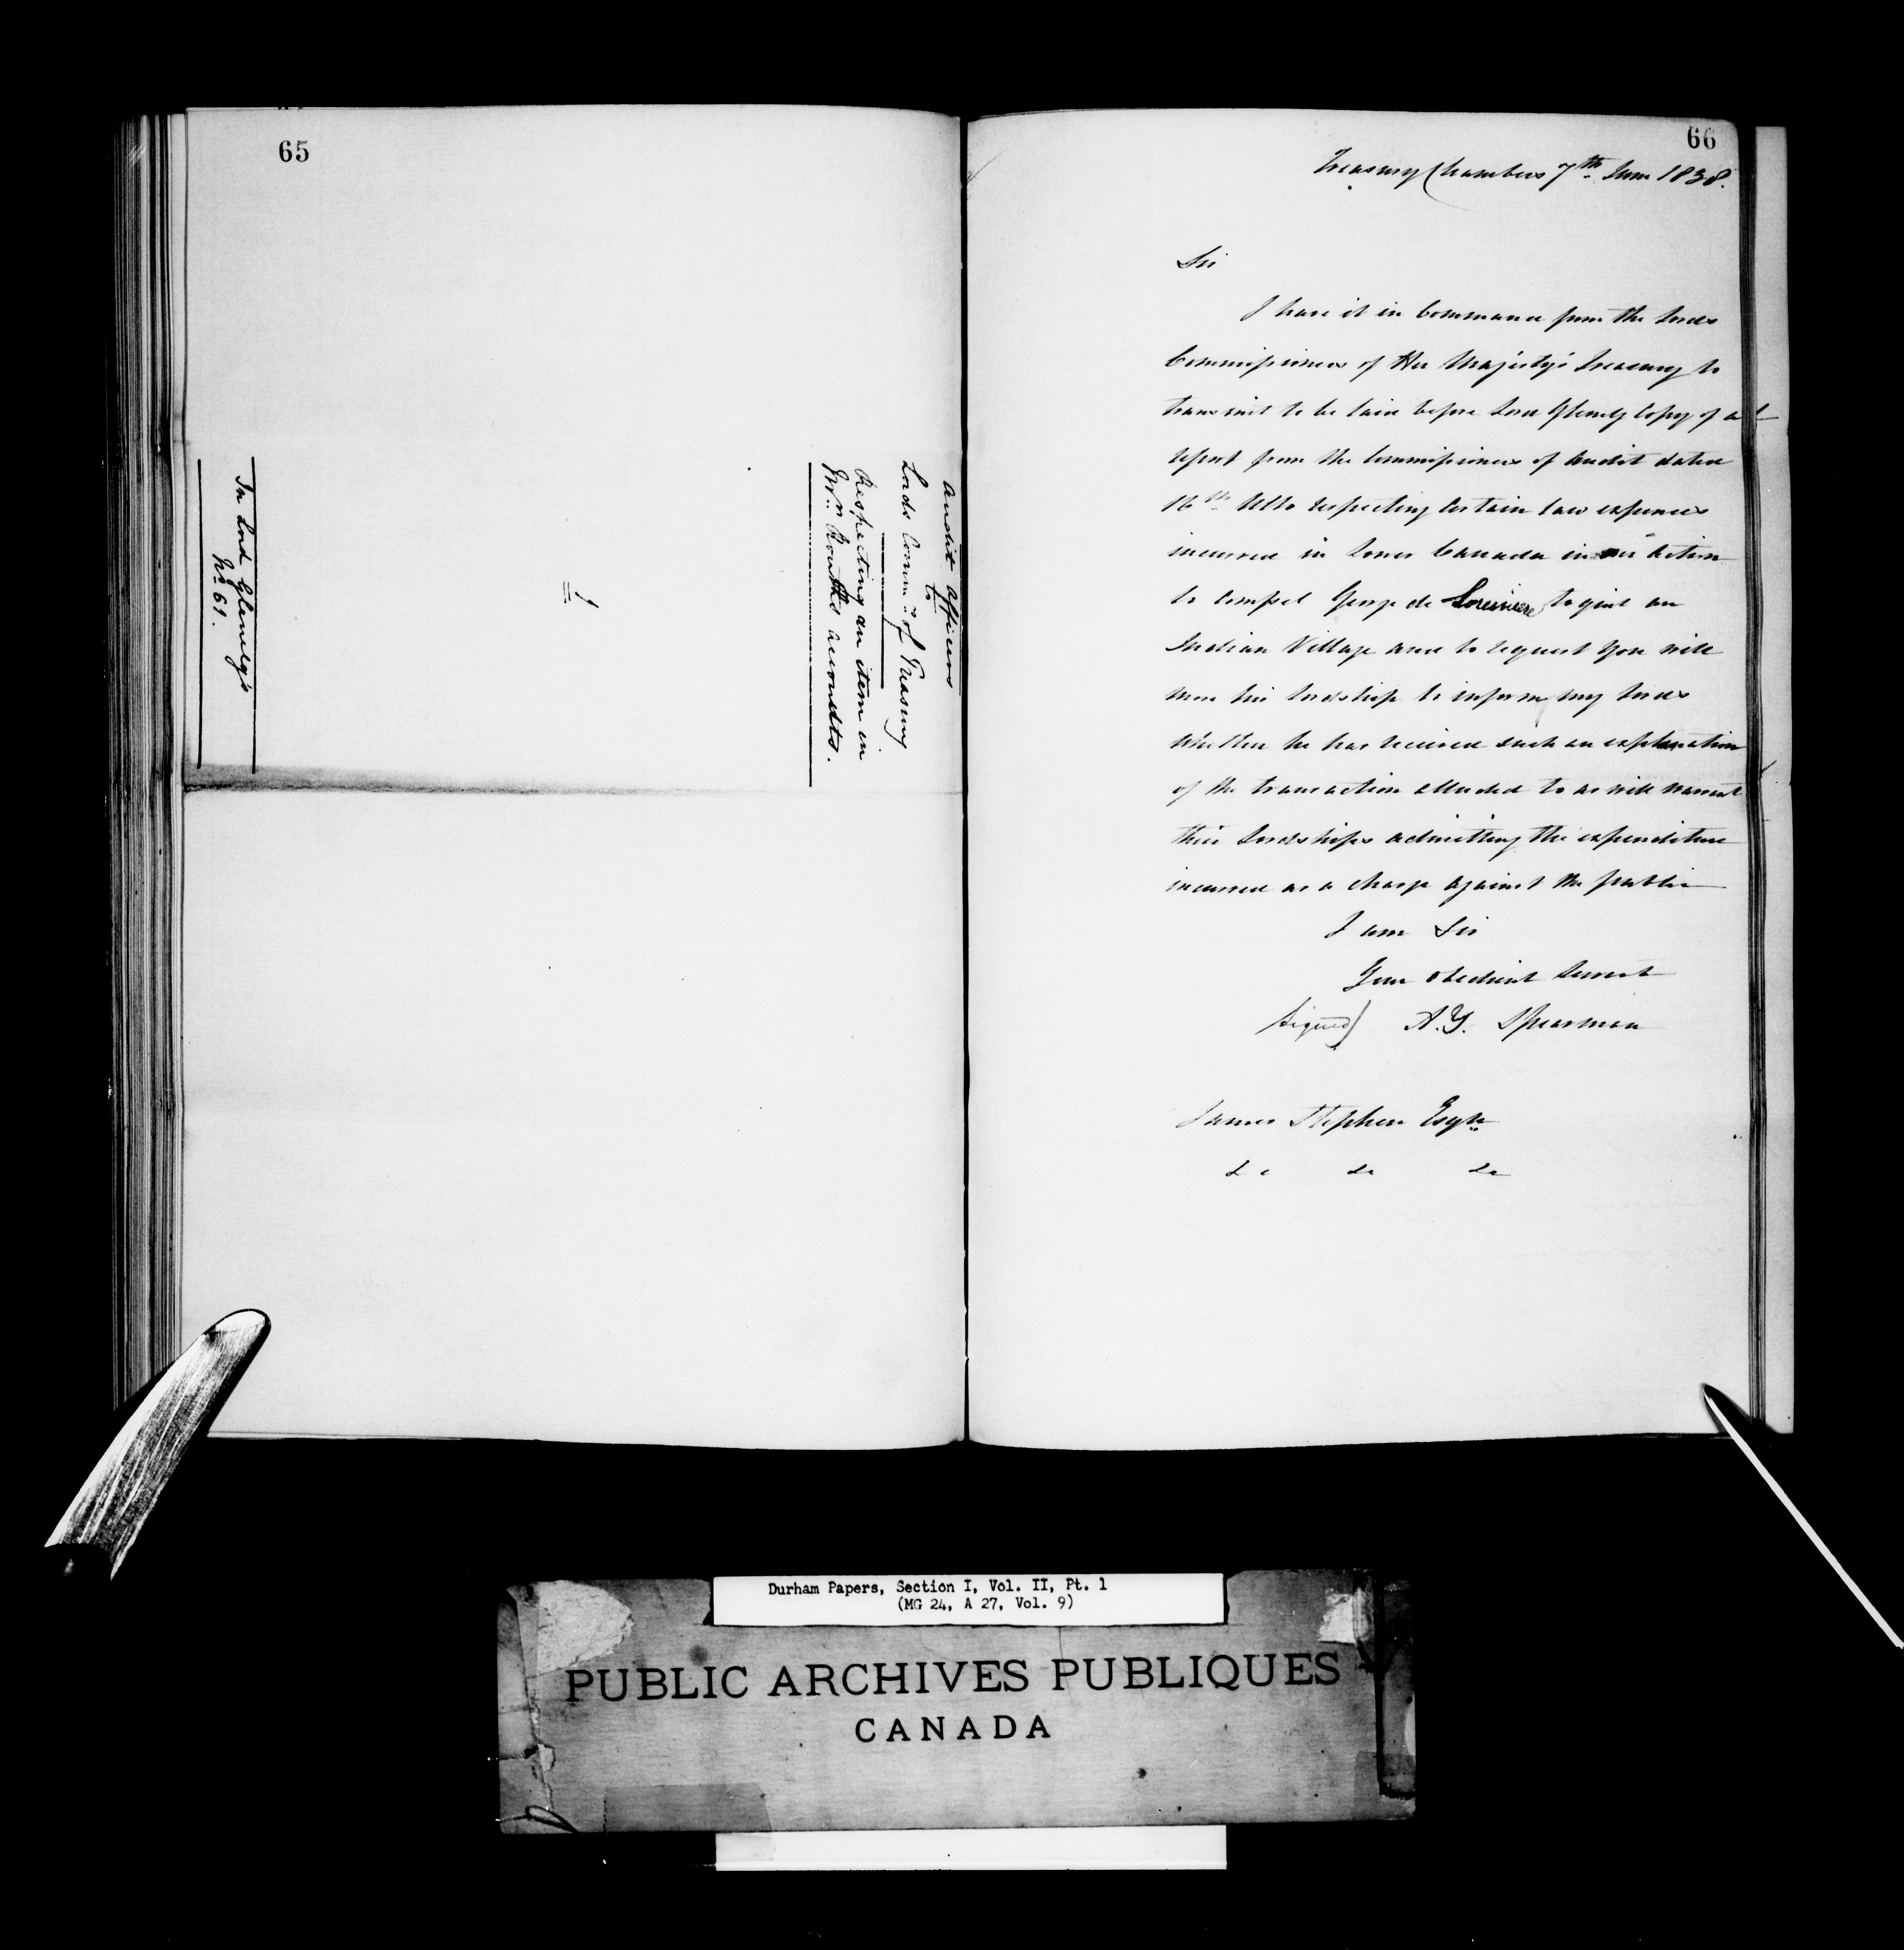 65
Audit Officers
to
Lords Comm:rs of Treasury
Respecting an item in
Mr. Rouths accounts.
1
In Lord Glenelg's
No 61.
66
Treasury Chambers 7th June 1838.
Sir
I have it in Command from the Lords
Commissioners of Her Majesty's Treasury to
transmit to be laid before Lord Glenelg Copy of a
report from the Commissioners of Audit dated
16th Ulto respecting certain law expenses
incurred in Lower Canada in an Action
to compel George de Lorimiere to quit an
Indian Village and to request you will
move his Lordship to inform my Lords
whether he has received such an explanation
of the transaction alluded to as will warrant
their Lordships admitting the expenditure
incurred as a charge against the public
I am Sir
Your obedient Servant
Signed) A.Y. Spearman
James Stephen Esqre
&c &c &c
Durham Papers, Section I, Vol. II, Pt. 1
(MG 24, A 27, Vol. 9)
PUBLIC ARCHIVES PUBLIQUES
CANADA